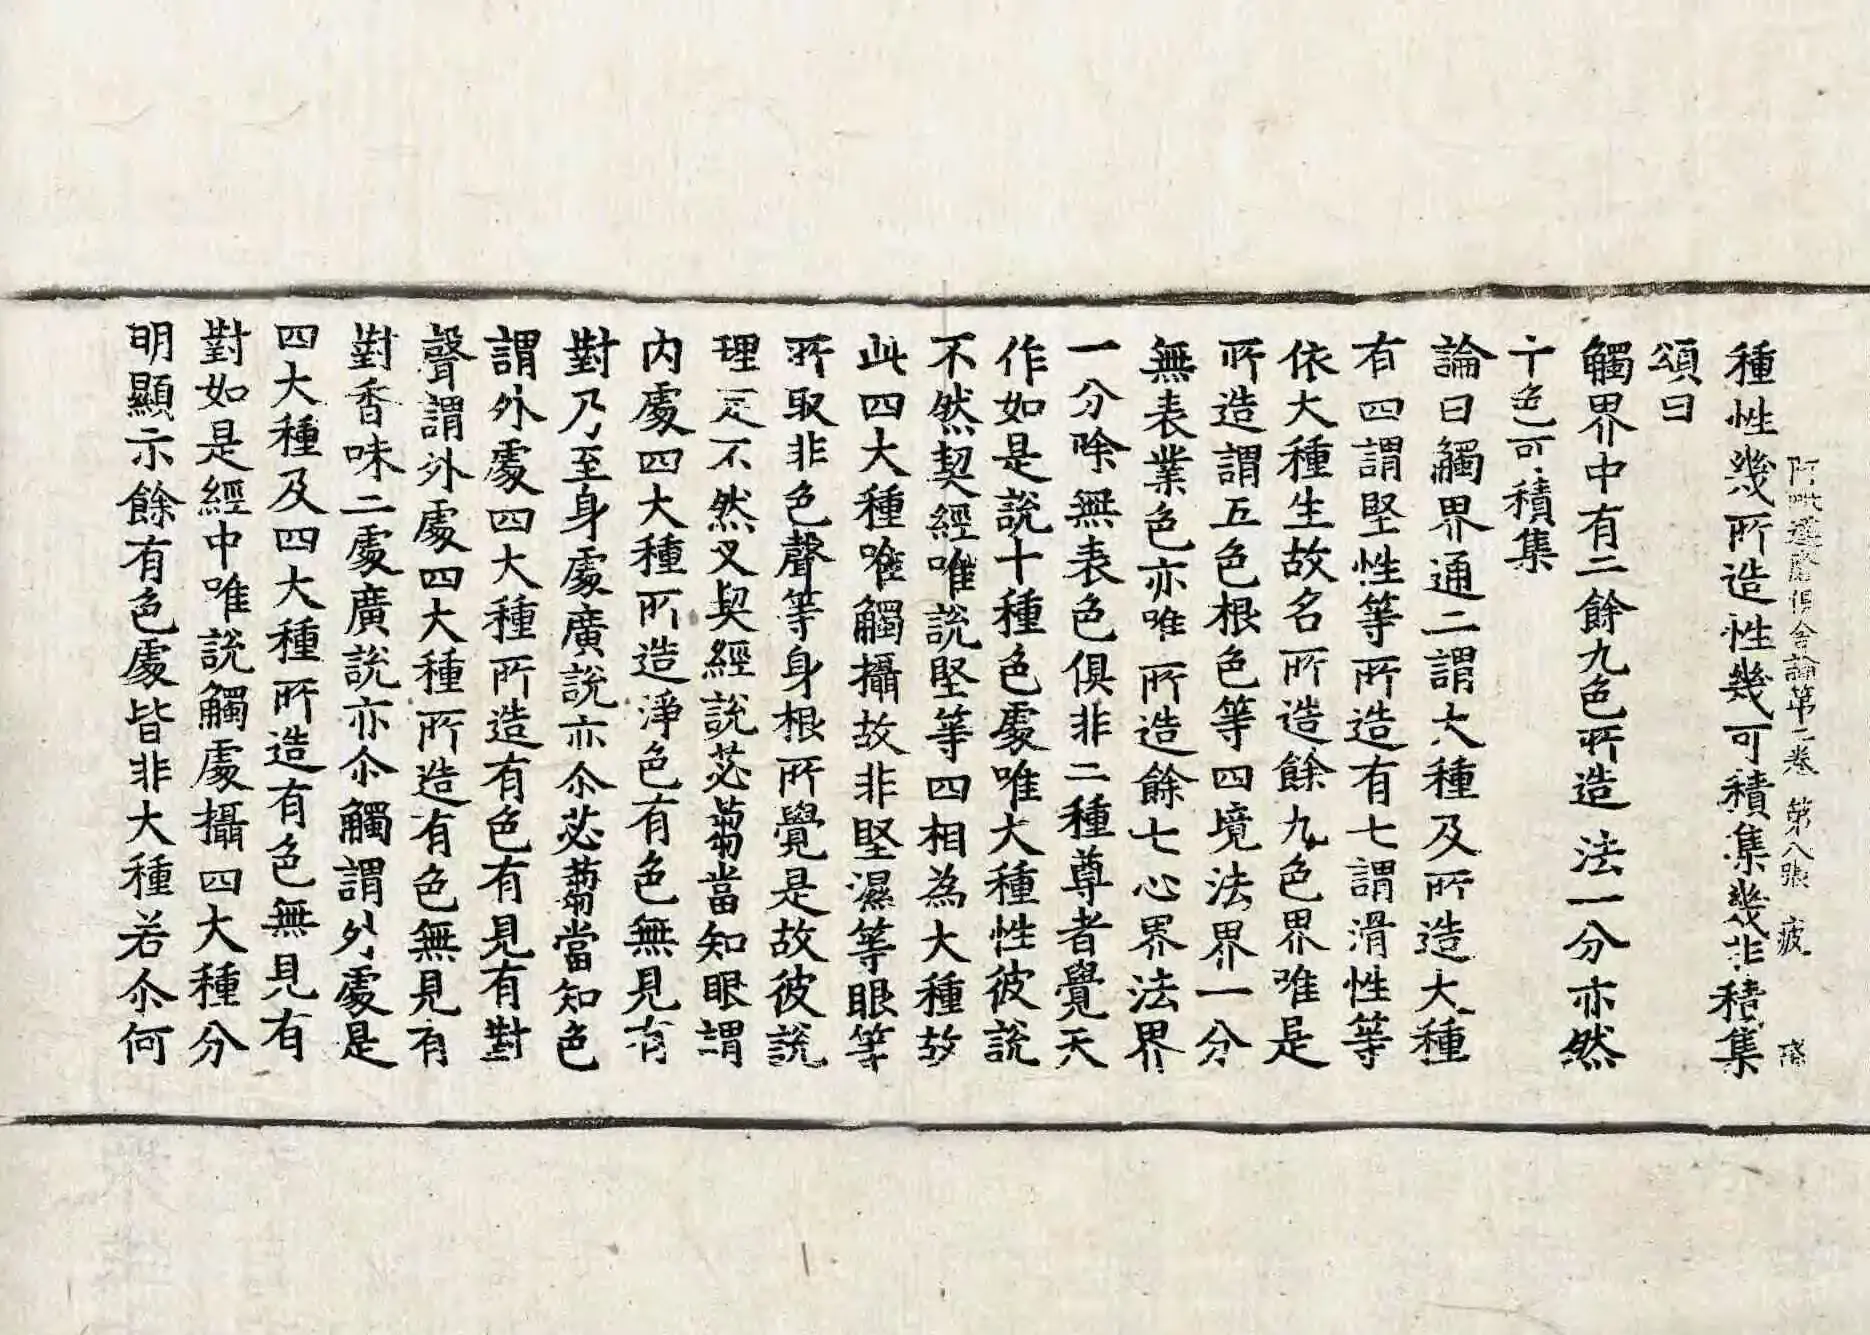 阿毗達磨俱舍論第二卷 第八張 疲
種性幾所造性幾可積集幾非積集
頌曰
觸界中有二餘九色所造 法一分亦然
十色可積集
論曰觸界通二謂大種及所造大種
有四謂堅性等所造有七謂滑性等
依大種生故名所造餘九色界唯是
所造謂五色根色等四境法界一分
無表業色亦唯所造餘七心界法界
一分除無表色俱非二種尊者覺天
作如是說十種色處唯大種性彼說
不然契經唯說堅等四相為大種故
此四大種唯觸攝故非堅濕等眼等
所取非色聲等身根所覺是故彼說
理定不然又契經說苾蒭當知眼謂
內處四大種所造淨色有色無見有
對乃至身處廣說亦尒苾蒭當知色
謂外處四大種所造有色有見有對
聲謂外處四大種所造有色無見有
對香味二處廣說亦尒觸謂外處是
四大種及四大種所造有色無見有
對如是經中唯說觸處攝四大種分
明顯示餘有色處皆非大種若尒何